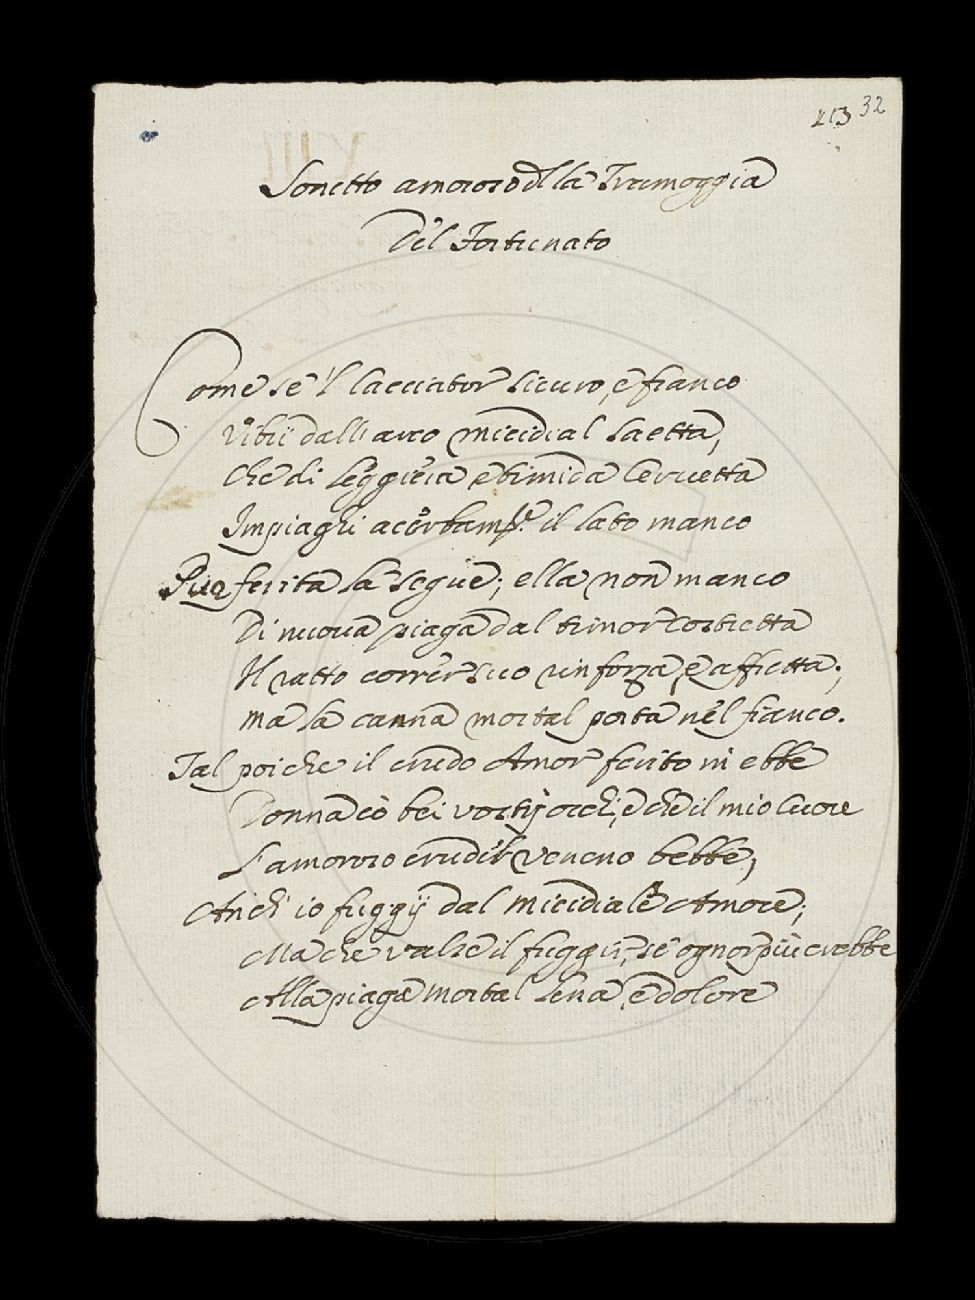 413 32
Sonetto amoroso della Tramoggia
Del Fortunato
Come se 'l cacciator sicuro, e franco
Vibri dall' arco micidial saetta,
Che di leggiera e timida Cervetta
Impiaghi acerbam.te il lato manco
Pur ferita la segue; ella non manco
Di nuova piaga dal timor costretta
Il ratto correr suo rinforza, e affretta;
ma la canna mortal porta nel fianco.
Tal poiche il crudo Amor ferito m' ebbe
Donna co bei vostrj occhi, e che il mio Cuore
L'amoroso crudel veneno bebbe,
Anch' io fuggij dal micidiale Amore;
Ma che valse il fuggir, se ognor più crebbe
Alla piaga mortal lena, e dolore